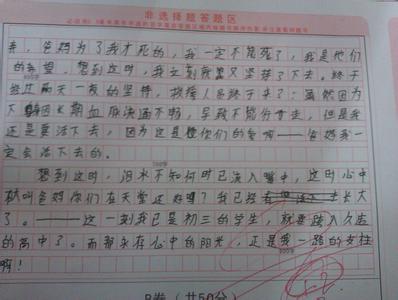 非选择题答题区
亲，爸妈为了我才死的，我一定不能死了，我是他们
的希望，想到这时，我立刻就又坚持了下去。终于
经过两天一夜的坚持，救援人员终于来了；虽然因为
下 因长期血脉流通不畅，导致不能行走，但是我
还是要活下去，因为这是 你们的 爸妈我一
定会活下去的。
想到这时，泪水不知何时已流入嘴中，这时心中
就叫爸妈你们在天堂还好吗？我已经 长大
了。——这一刻我已是初三的学生，就要踏入久违
的高中了。而那朵在心中的阳光，正是我一路的支柱
啊！
B卷（共50分）